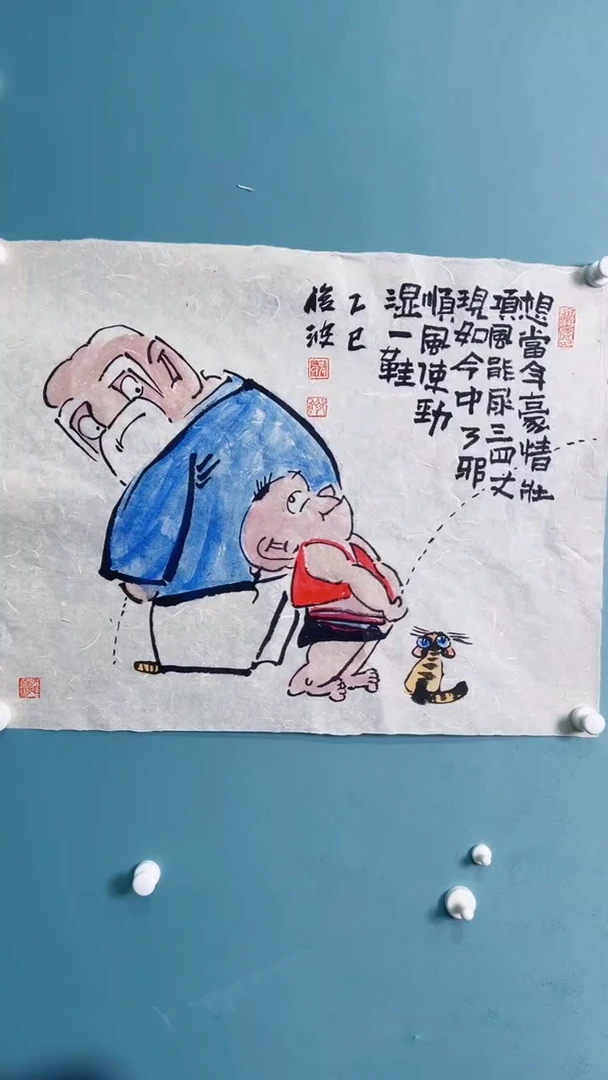 想當年豪情壯
項風能尿三四丈
現如今中了邪
順風使勁
濕一鞋
乙巳
俊波